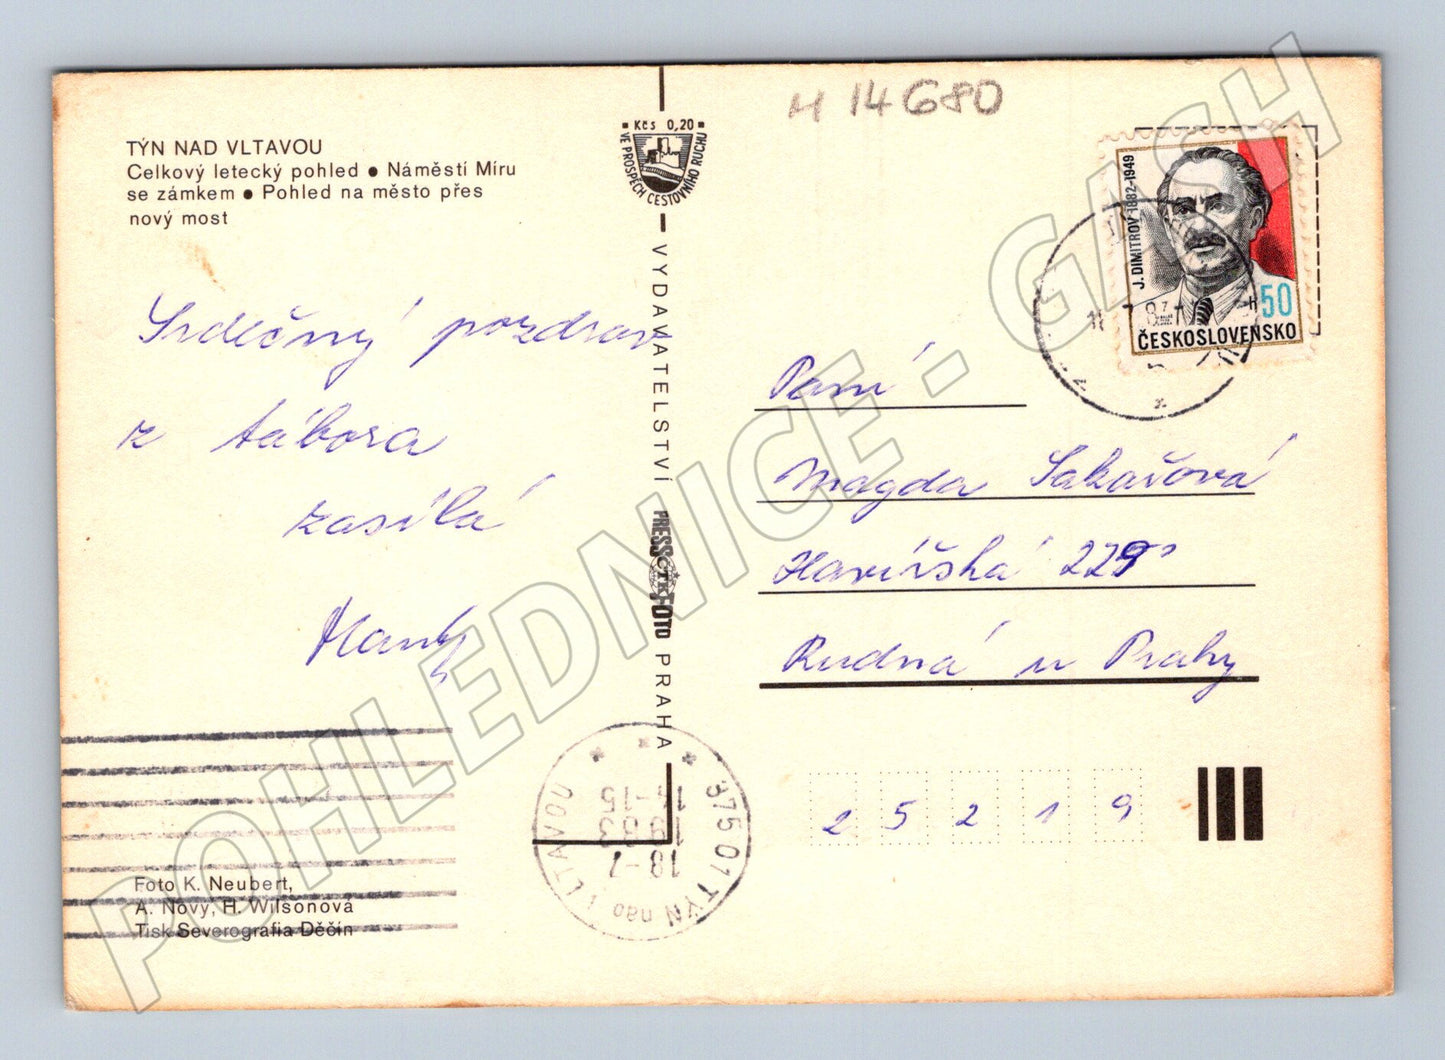 M 14680
TÝN NAD VLTAVOU
Celkový letecký pohled ● Náměstí Míru
se zámkem ● Pohled na město přes
nový most
Kčs 0,20
VE PROSPĚCH CESTOVNÍHO RUCHU
VYDAVATELSTVÍ PRESSFOTO PRAHA
ČTK
J. DIMITROV 1882-1949
h 50
ČESKOSLOVENSKO
Srdečný pozdrav
z tábora
zasílá
Paní
Magda Sakařová
Havířská 229
Rudná u Prahy
25219
375 01 TÝN nad VLTAVOU
18-7
Foto K. Neubert,
A. Nový, H. Wilsonová
Tisk Severografia Děčín
POHLEDNICE - GASH